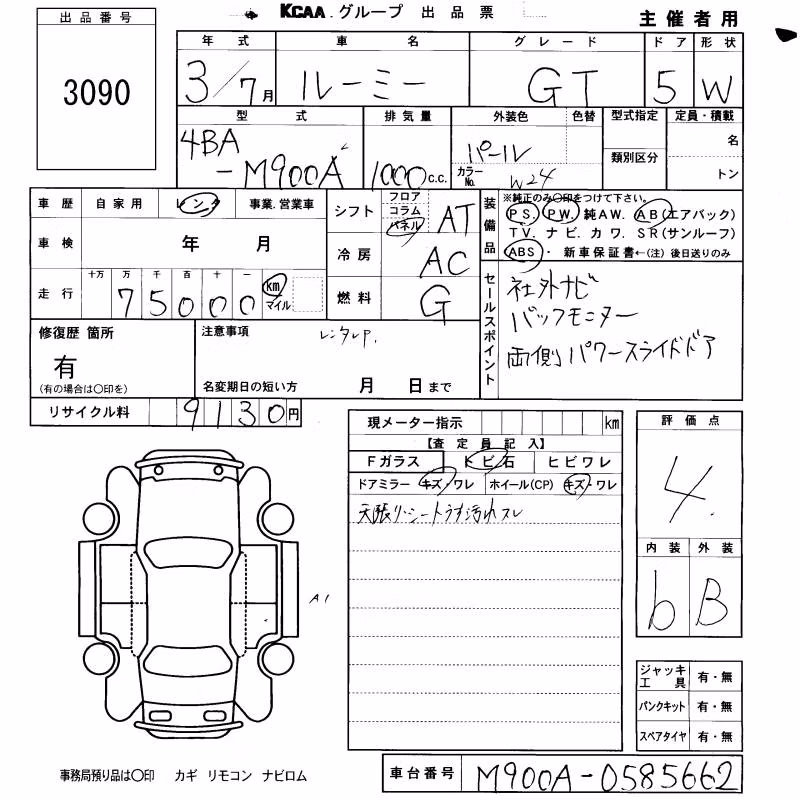 KCAA.グループ 出品票
主催者用
出品番号
3090
年式 車名 グレード ドア 形状
3/7月 ルーミー GT 5 W
型式 排気量 外装色 色替 型式指定 定員・積載
4BA-M900A 1000c.c. パール 名
カラーNo. W24 類別区分 トン
車歴 自家用 レンタ 事業.営業車
シフト フロア コラム パネル AT
装備品 ※純正のみ〇印をつけて下さい。
PS. PW. 純AW. AB(エアバック)
TV. ナビ. カワ. SR(サンルーフ)
ABS・新車保証書←(注)後日送りのみ
車検 年 月
冷房 AC
走行 十万 万 千 百 十 一
75000 km マイル
燃料 G
セールスポイント
社外ナビ
バックモニター
両側パワースライドドア
修復歴 箇所
有
(有の場合は〇印を)
注意事項 レンタUP.
名変期日の短い方 月 日まで
リサイクル料 9130円
現メーター指示 km
【査定員記入】
Fガラス トビ石 ヒビワレ
ドアミラー キズ/ワレ ホイール(CP) キズ・ワレ
天張り・シートうす汚れスレ
評価点
4.
内装 外装
b B
A1
ジャッキ工具 有・無
パンクキット 有・無
スペアタイヤ 有・無
事務局預り品は〇印 カギ リモコン ナビロム
車台番号 M900A-0585662